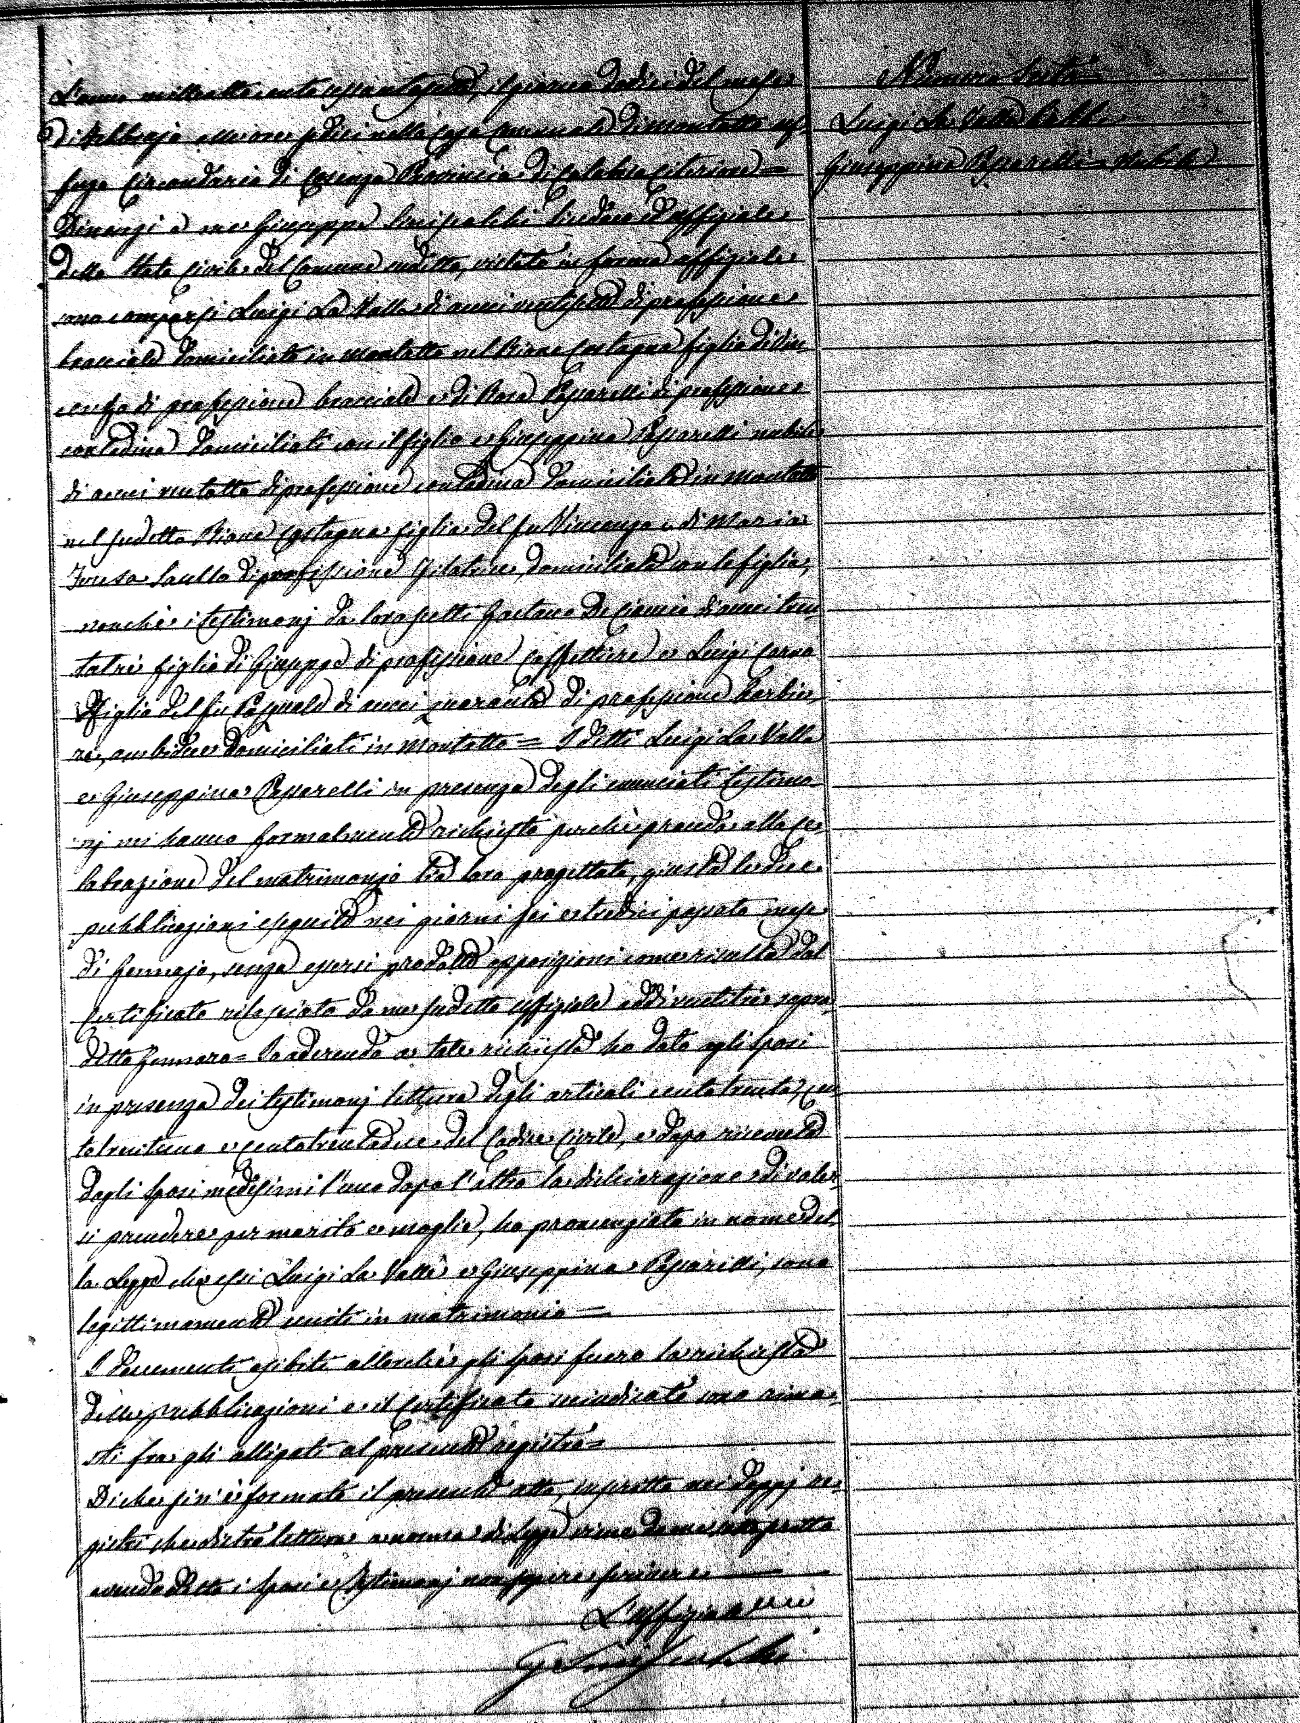 L'anno milleottocentosessantasette, il giorno dodici del mese
di Febbrajo alle ore sedici nella Casa Comunale di Montalto Uf-
fugo Circondario di Cosenza Provincia di Calabria Citeriore =
Dinanzi a me Giuseppe Sindaco ed Uffiziale
dello Stato Civile del Comune suddetto, vestito in forma uffiziale
sono comparsi Luigi La Valle di anni ventisette di professione
bracciale domiciliato in Montalto nel Rione Castagna figlio di Vin-
cenzo di professione bracciale e di Rosa Passarelli di professione
contadina domiciliati con il figlio e Giuseppina Passarelli nubile
di anni ventotto di professione contadina domiciliata in Montalto
nel sudetto Rione Castagna figlia del fu Vincenzo e di Maria
Teresa di professione filatrice domiciliata con la figlia,
nonchè i testimonj da loro scelti Gaetano De Ciancio di anni tren-
tatrè figlio di Giuseppe di professione Caffettiere e Luigi Carno
figlio del fu Pasquale di anni quaranta di professione Barbie-
re, ambedue domiciliati in Montalto = I detti Luigi La Valle
e Giuseppina Passarelli in presenza degli enunciati testimo-
nj mi hanno formalmente richiesto perchè proceda alla ce-
lebrazione del matrimonio tra loro progettato, giusta le due
pubblicazioni eseguite nei giorni sei e tredici passato mese
di Gennajo, senza essersi prodotte opposizioni come risulta dal
Certificato rilasciato da me sudetto Uffiziale addì ventitre sopra-
detto Gennaro = Io aderendo a tale richiesta ho dato agli Sposi
in presenza dei testimonj lettura degli articoli centotrenta, cen-
totrentuno e centotrentadue del Codice Civile, e dopo ricevuta
dagli Sposi medesimi l'uno dopo l'altro la dichiarazione di voler-
si prendere per marito e moglie, ho pronunziato in nome del-
la Legge che essi Luigi La Valle e Giuseppina Passarelli, sono
legittimamente uniti in matrimonio =
I documenti esibiti allorchè gli Sposi fecero la richiesta
delle pubblicazioni e il Certificato suindicato sono rima-
sti fra gli alligati al presente registro =
Di che si è formato il presente atto, inscritto nei doppj re-
gistri, che dietro lettura a norma di Legge viene da me sottoscritto
avendo detto i Sposi e Testimonj non sapere scrivere
L'Uffiziale
Numero Sesto
Luigi La Valle Celibe
Giuseppina Passarelli = Nubile